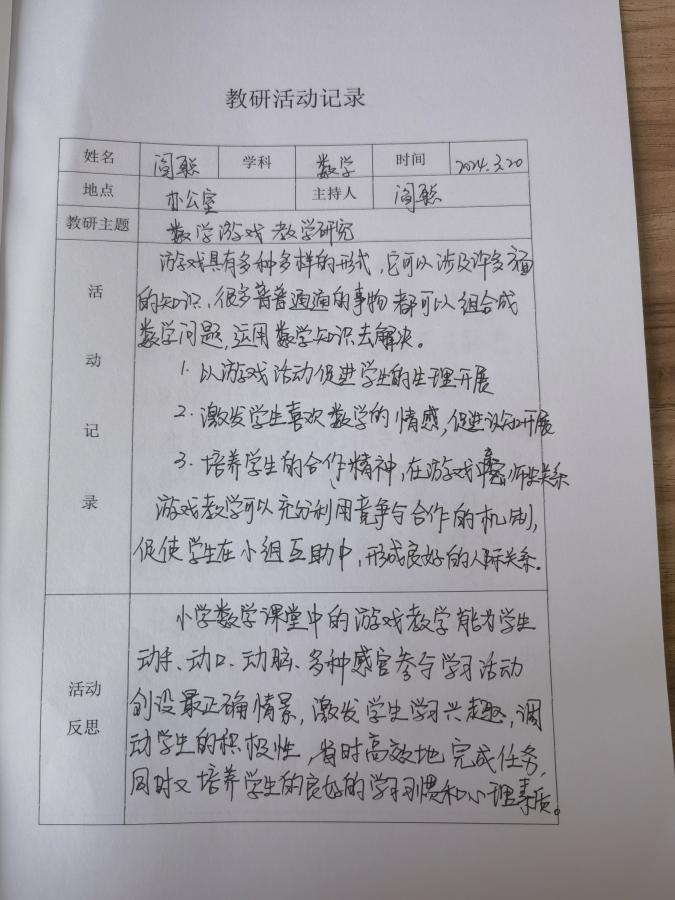 教研活动记录
姓名 闾聪 学科 数学 时间 2024.3.20
地点 办公室 主持人 闾聪
教研主题 数学游戏教学研究
活动记录
游戏具有多种多样的形式,它可以涉及许多方面
的知识,很多普普通通的事物都可以组合成
数学问题,运用数学知识去解决。
1. 以游戏活动促进学生的生理开展
2. 激发学生喜欢数学的情感,促进认知开展
3. 培养学生的合作精神,在游戏中 师生关系
游戏教学可以充分利用竞争与合作的机制,
促使学生在小组互助中,形成良好的人际关系.
活动反思
小学数学课堂中的游戏教学能为学生
动手、动口、动脑、多种感官参与学习活动
创设最正确情景,激发学生学习兴趣,调
动学生的积极性,省时高效地完成任务,
同时又培养学生的良好的学习习惯和心理素质。